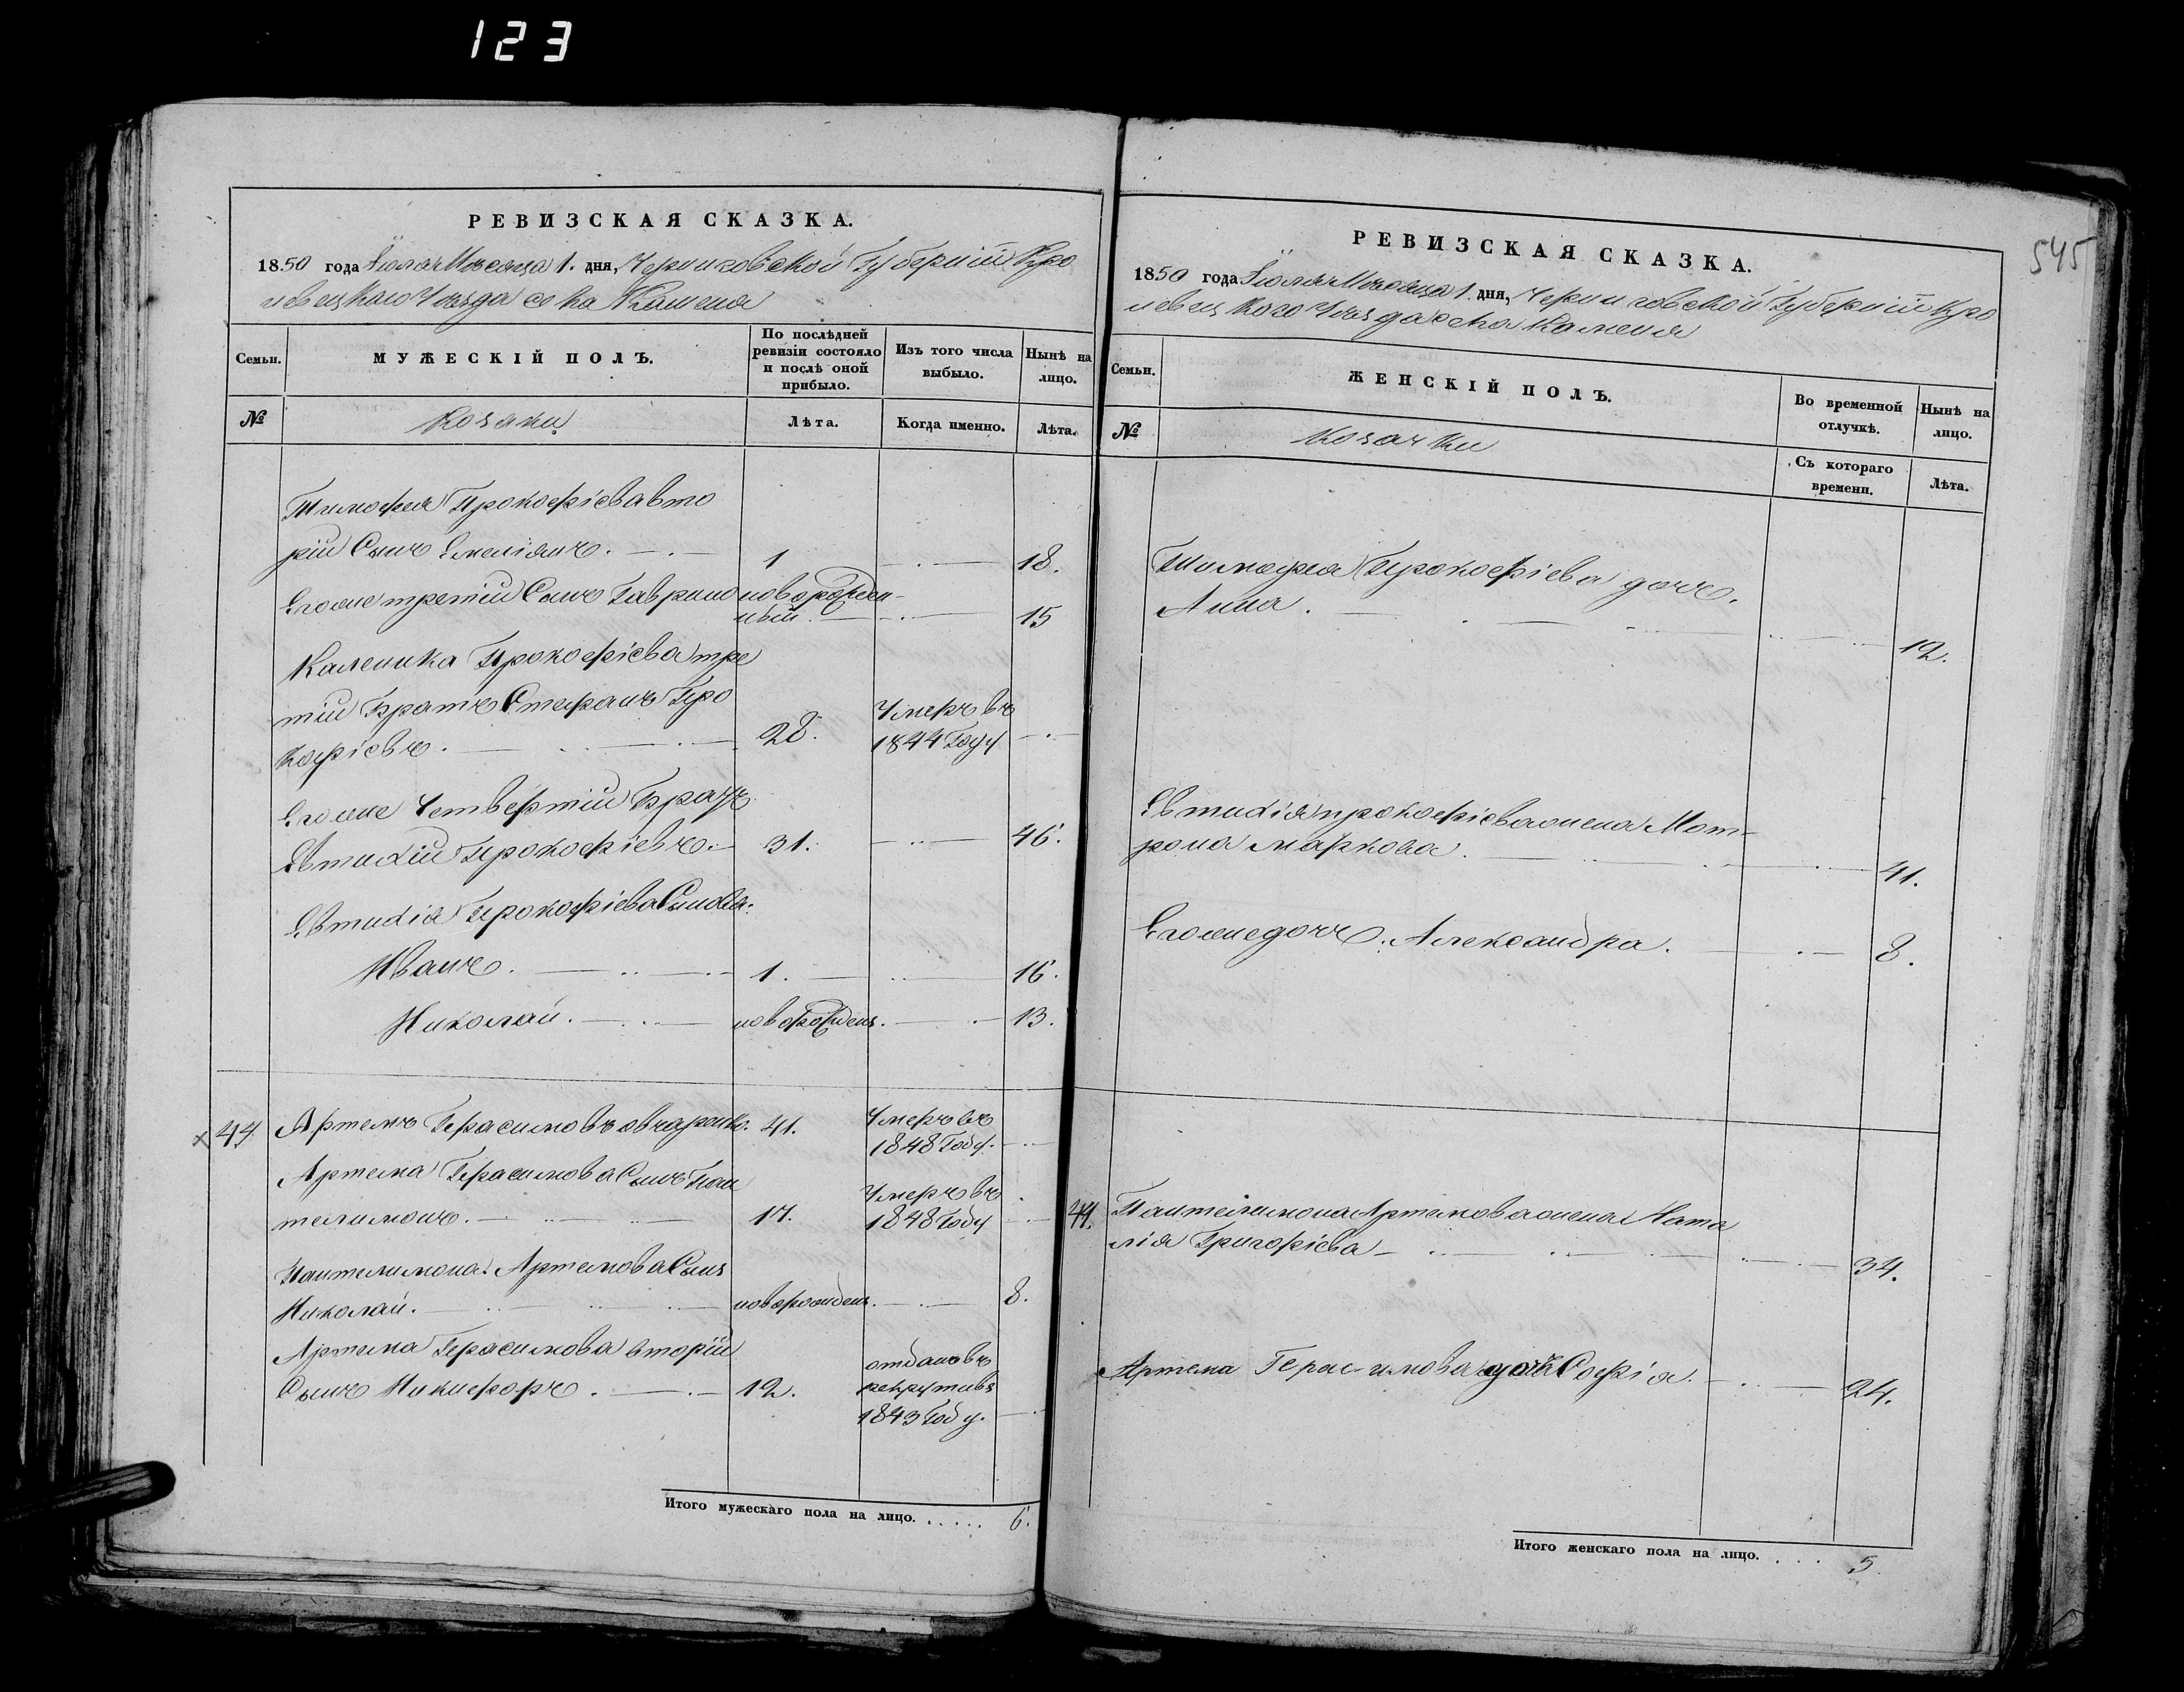 123
545
РЕВИЗСКАЯ СКАЗКА.
1850 года Іюля Месяца 1. дня, Черниговской Губерніи Кро
левецкого Уезда села Каменя
Семьи.
МУЖЕСКІЙ ПОЛЪ.
По послѣдней
ревизіи состояло
и послѣ оной
прибыло.
Изъ того числа
выбыло.
Нынѣ на
лицо.
№
Козаки
Лѣта.
Когда именно.
Лѣта.
Тимофея Прокофіева вто
рій Сынъ Емеліянъ. 1 18.
Егоже третій Сынъ Гаврило новорожден-
ный. 15
Каленика Прокофіева тре
тій Братъ Стефанъ Про 28. Умеръ въ
кофіевъ. 1844 Году
Егоже Четвертій Братъ
Евтихій Прокофіевъ. 31. 46.
Евтихія Прокофіева Сыновя:
Иванъ. 1. 16.
Николай. новорожден. 13.
44 Артемъ Герасимовъ 41. Умеръ въ
1848 Году.
Артема Герасимова Сынъ Пан Умеръ въ
телимонъ. 17. 1848 Году
Пантелимона Артемова Сынъ
Николай. новорожден. 8.
Артема Герасимова вторій отданъ въ
Сынъ Никифоръ. 12. рекруты въ
1843 Году.
Итого мужескаго пола на лицо. . . . . . 6.
РЕВИЗСКАЯ СКАЗКА.
1850 года Іюля Месяца 1. дня, Черниговской Губерніи Кро
левецкого Уезда села Каменя
Семьи.
ЖЕНСКІЙ ПОЛЪ.
Во временной
отлучкѣ.
Нынѣ на
лицо.
№
Козачки
Съ котораго
времени.
Лѣта.
Тимофея Прокофіева дочь.
Анна. 12.
Евтихія прокофіева жена Мот-
рона Маркова. 41.
Егоже дочь. Александра. 8.
44. Пантелимона Артемова жена Ната
лія Григоріева 34.
Артема Герасимова дочь Софія. 24.
Итого женскаго пола на лицо. . . . 5